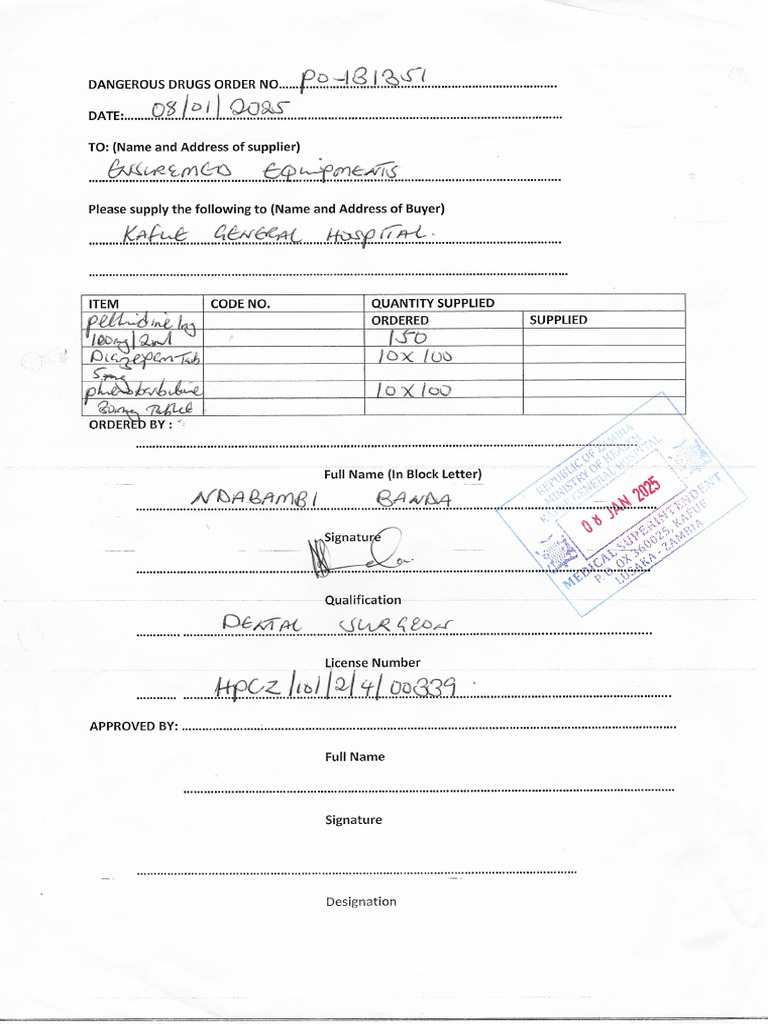 DANGEROUS DRUGS ORDER NO. PO-181351
DATE: 08/01/2025
TO: (Name and Address of supplier)
ENSUREMED EQUIPMENTS
Please supply the following to (Name and Address of Buyer)
KAFUE GENERAL HOSPITAL.
ITEM CODE NO. QUANTITY SUPPLIED
ORDERED SUPPLIED
100mg/2ml 150
Diazepam Tab 10 X 100
5mg
10 X 100
30mg Tablet
ORDERED BY :
Full Name (In Block Letter)
NDABAMBI BANDA
Signature
Qualification
DENTAL SURGEON
License Number
HPCZ/101/2/4/00339
APPROVED BY:
Full Name
Signature
Designation
REPUBLIC OF ZAMBIA
MINISTRY OF HEALTH
GENERAL HOSPITAL
08 JAN 2025
MEDICAL SUPERINTENDENT
P.O. OX 360025, KAFUE
LUSAKA - ZAMBIA